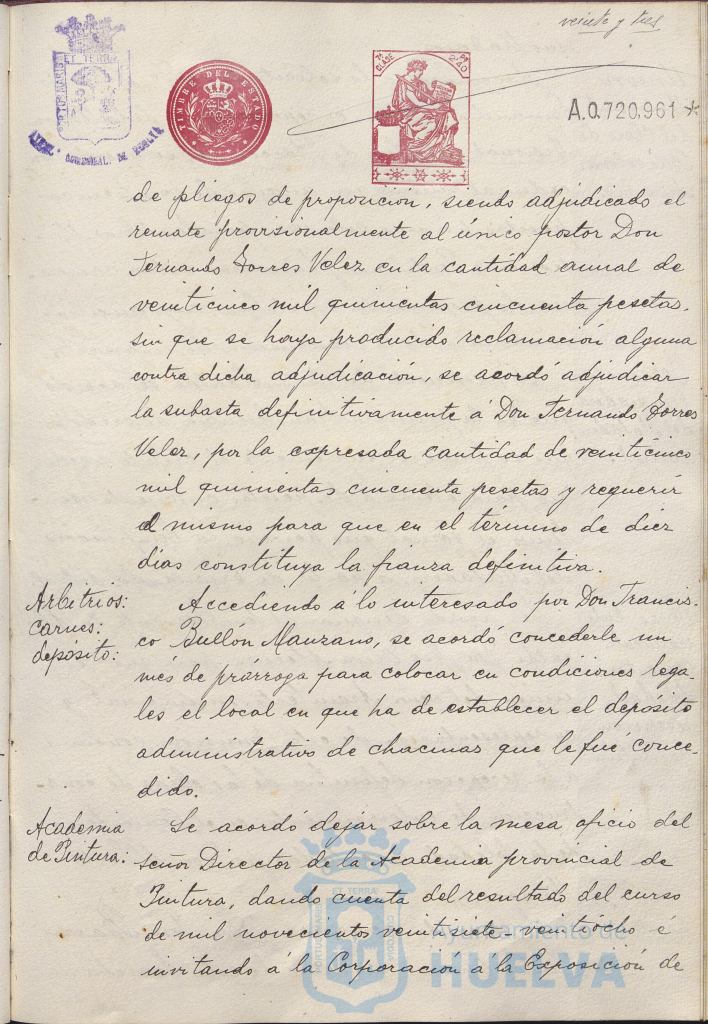 veinte y tres
TIMBRE DEL ESTADO
7ª CLASE
Pts 2'40
A.0.720,961 *
ET TERRÆ
de pliegos de proposición, siendo adjudicado el
remate provisionalmente al único postor Don
Fernando Torres Velez en la cantidad anual de
veinticinco mil quinientas cincuenta pesetas,
sin que se haya producido reclamación alguna
contra dicha adjudicación, se acordó adjudicar
la subasta definitivamente á Don Fernando Torres
Velez, por la expresada cantidad de veinticinco
mil quinientas cincuenta pesetas y requerir
al mismo para que en el término de diez
dias constituya la fianza definitiva.
Arbitrios:
carnes:
depósito:
Accediendo á lo interesado por Don Francis-
co Bullón Manzano, se acordó concederle un
més de prórroga para colocar en condiciones lega-
les el local en que ha de establecer el depósito
administrativo de chacinas que le fué conce-
dido.
Academia
de Pintura:
Se acordó dejar sobre la mesa oficio del
señor Director de la Academia provincial de
Pintura, dando cuenta del resultado del curso
de mil novecientos veintisiete-veintiocho é
invitando á la Corporación a la Exposición de
Ayuntamiento de
HUELVA